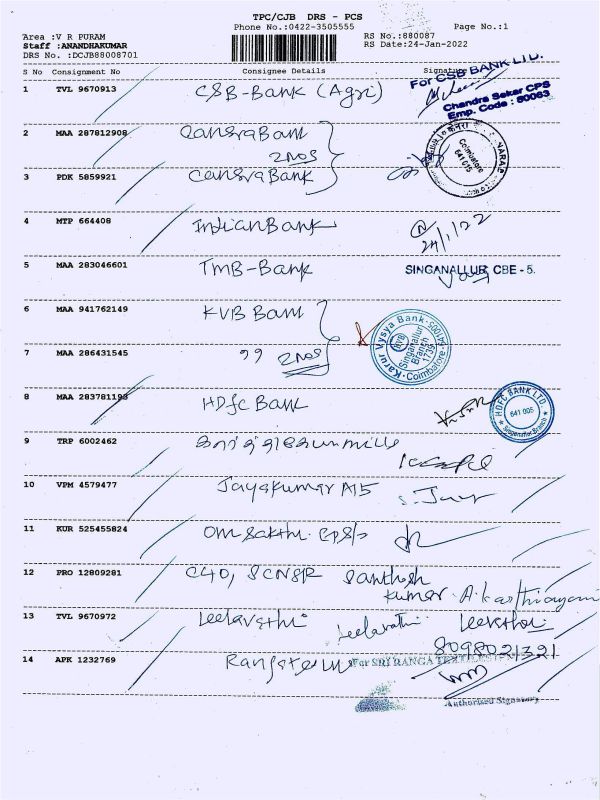 TPC/CJB DRS - PCS
Phone No.:0422-3505555
Page No.:1
Area :V R PURAM
RS No.:880087
Staff :ANANDHAKUMAR
RS Date:24-Jan-2022
DRS No. :DCJB88008701
S No Consignment No Consignee Details Signature
For CSB BANK LTD.
1 TVL 9670913 CSB-Bank (Agri)
Chandra Sekar CPS
Emp. Code : 50063
2 MAA 287812908 Canara Bank
2nos
Coimbatore
641 015
3 PDK 5859921 Canara Bank
4 MTP 664408 Indian Bank
24/1/22
5 MAA 283046601 TMB-Bank SINGANALLUR, CBE - 5.
6 MAA 941762149 KVB Bank
Karur Vysya Bank
KVB
Singanallur
Branch
1739
641005
Coimbatore
7 MAA 286431545 " 2nos
8 MAA 283781198 HDFC Bank
HDFC BANK LTD.
641 005
Singanallur Branch
9 TRP 6002462
10 VPM 4579477 Jayakumar A15 S. Jay
11 KUR 525455824 Om Sakthi
12 PRO 12809281 C40, SCNSR Santhosh
Kumar. A. Karthiayani
13 TVL 9670972 Leelavathi Leelavathi Leelavathi
8098021321
14 APK 1232769
For SRI RANGA
Authorised Signatory